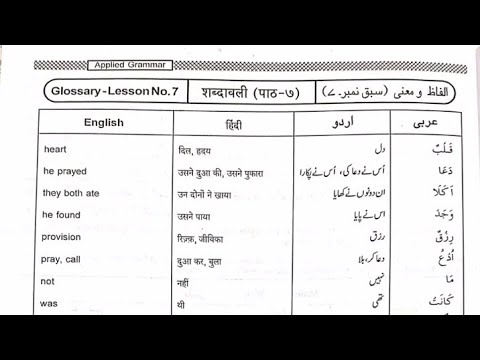 Applied Grammar
Glossary - Lesson No. 7 शब्दावली (पाठ-७) الفاظ و معنی (سبق نمبر۔ ۷)
English हिंदी اردو عربی
heart दिल, हृदय دل قَلْبٌ
he prayed उसने दुआ की, उसने पुकारा اُس نے دعا کی، اُس نے پکارا دَعَا
they both ate उन दोनों ने खाया ان دونوں نے کھایا اَكَلَا
he found उसने पाया اس نے پایا وَجَدَ
provision रिज़्क़, जीविका رزق رِزْقٌ
pray, call दुआ कर, बुला دعا کر، بلا اُدْعُ
not नहीं نہیں مَا
was थी تھی كَانَتْ